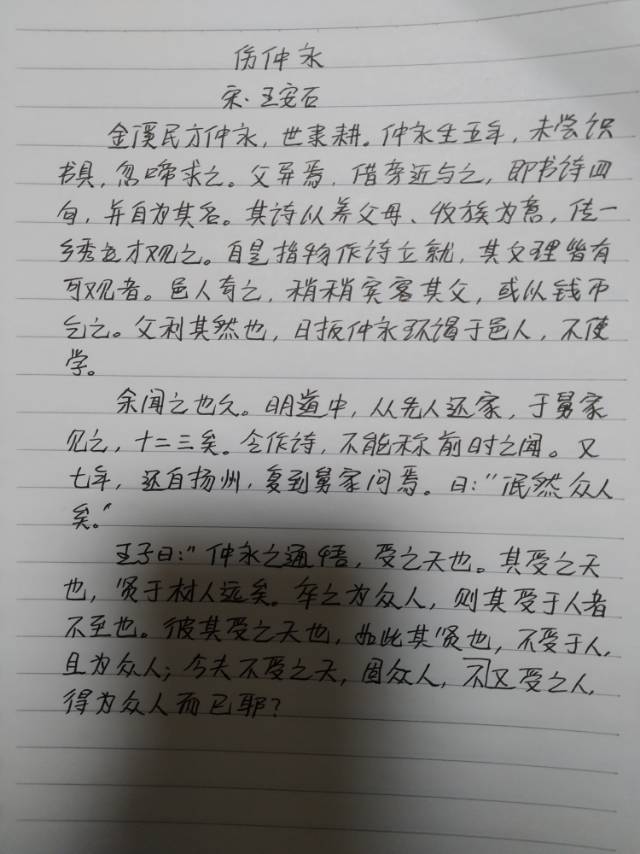 伤仲永
宋·王安石
金溪民方仲永，世隶耕。仲永生五年，未尝识
书具，忽啼求之。父异焉，借旁近与之，即书诗四
句，并自为其名。其诗以养父母、收族为意，传一
乡秀才观之。自是指物作诗立就，其文理皆有
可观者。邑人奇之，稍稍宾客其父，或以钱币
乞之。父利其然也，日扳仲永环谒于邑人，不使
学。
余闻之也久。明道中，从先人还家，于舅家
见之，十二三矣。令作诗，不能称前时之闻。又
七年，还自扬州，复到舅家问焉。曰：“泯然众人
矣。”
王子曰：“仲永之通悟，受之天也。其受之天
也，贤于材人远矣。卒之为众人，则其受于人者
不至也。彼其受之天也，如此其贤也，不受于人，
且为众人；今夫不受之天，固众人，不又受之人，
得为众人而已耶？